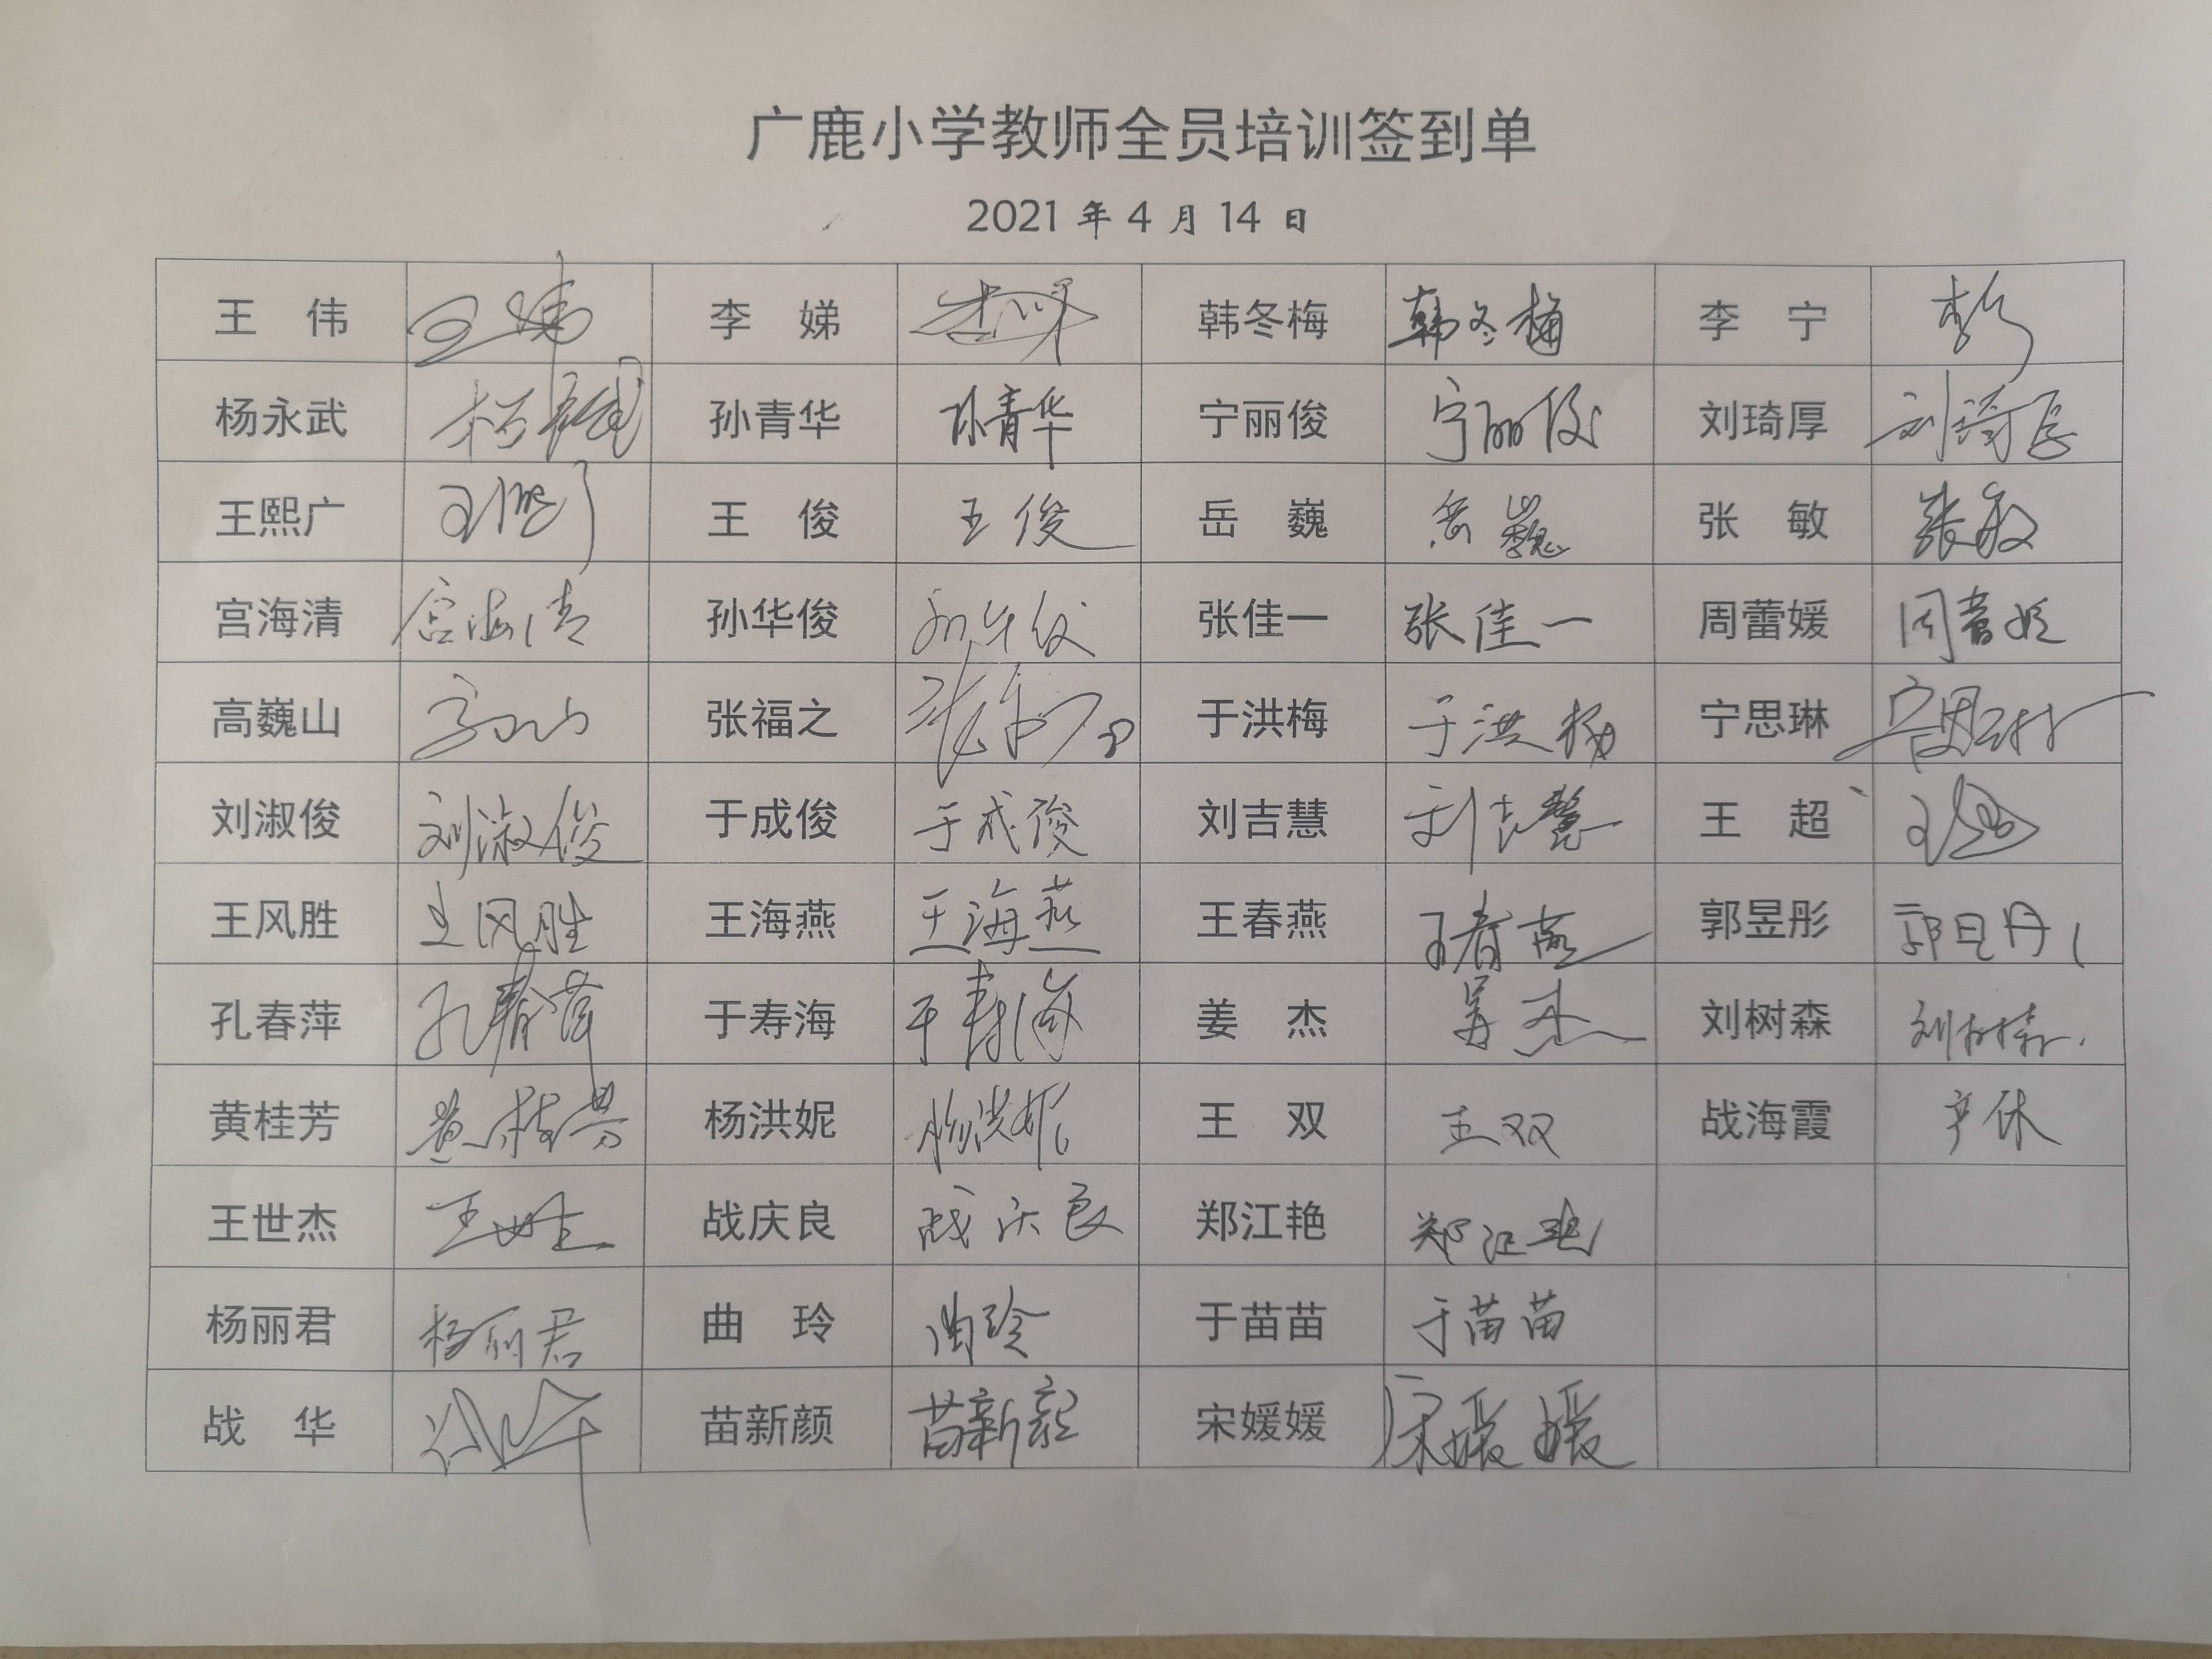 广鹿小学教师全员培训签到单
2021 年 4 月 14 日
王 伟 王伟 李 娣 李娣 韩冬梅 韩冬梅 李 宁 李宁
杨永武 杨永武 孙青华 孙青华 宁丽俊 宁丽俊 刘琦厚 刘琦厚
王熙广 王熙广 王 俊 王俊 岳 巍 岳巍 张 敏 张敏
宫海清 宫海清 孙华俊 孙华俊 张佳一 张佳一 周蕾媛 周蕾媛
高巍山 高山 张福之 张福之 于洪梅 于洪梅 宁思琳 宁思琳
刘淑俊 刘淑俊 于成俊 于成俊 刘吉慧 刘吉慧 王 超 王超
王风胜 王风胜 王海燕 王海燕 王春燕 王春燕 郭昱彤 郭昱彤
孔春萍 孔春萍 于寿海 于寿海 姜 杰 姜杰 刘树森 刘树森
黄桂芳 黄桂芳 杨洪妮 杨洪妮 王 双 王双 战海霞 产休
王世杰 王世杰 战庆良 战庆良 郑江艳 郑江艳
杨丽君 杨丽君 曲 玲 曲玲 于苗苗 于苗苗
战 华 战华 苗新颜 苗新颜 宋媛媛 宋媛媛